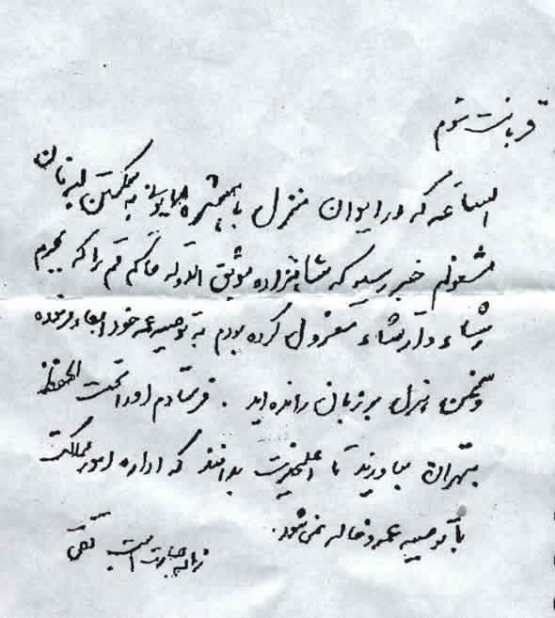 قربانت شوم
الساعه که در ایوان منزل با همشیره همایونی به شکستن لبه نان
مشغولم خبر رسید که شاهزاده موثق الدوله حاکم قم را که بجرم
رشاء و ارتشاء معزول کرده بودم به توصیه عمه خود ابقاء فرموده
و سخن هزل بر زبان رانده‌اید . فرستادم او را تحت الحفظ
بتهران بیاورند تا اعلیحضرت بدانند که اداره امور مملکت
با توصیه عمه و خاله نمی‌شود.
زیاده جسارت است تقی